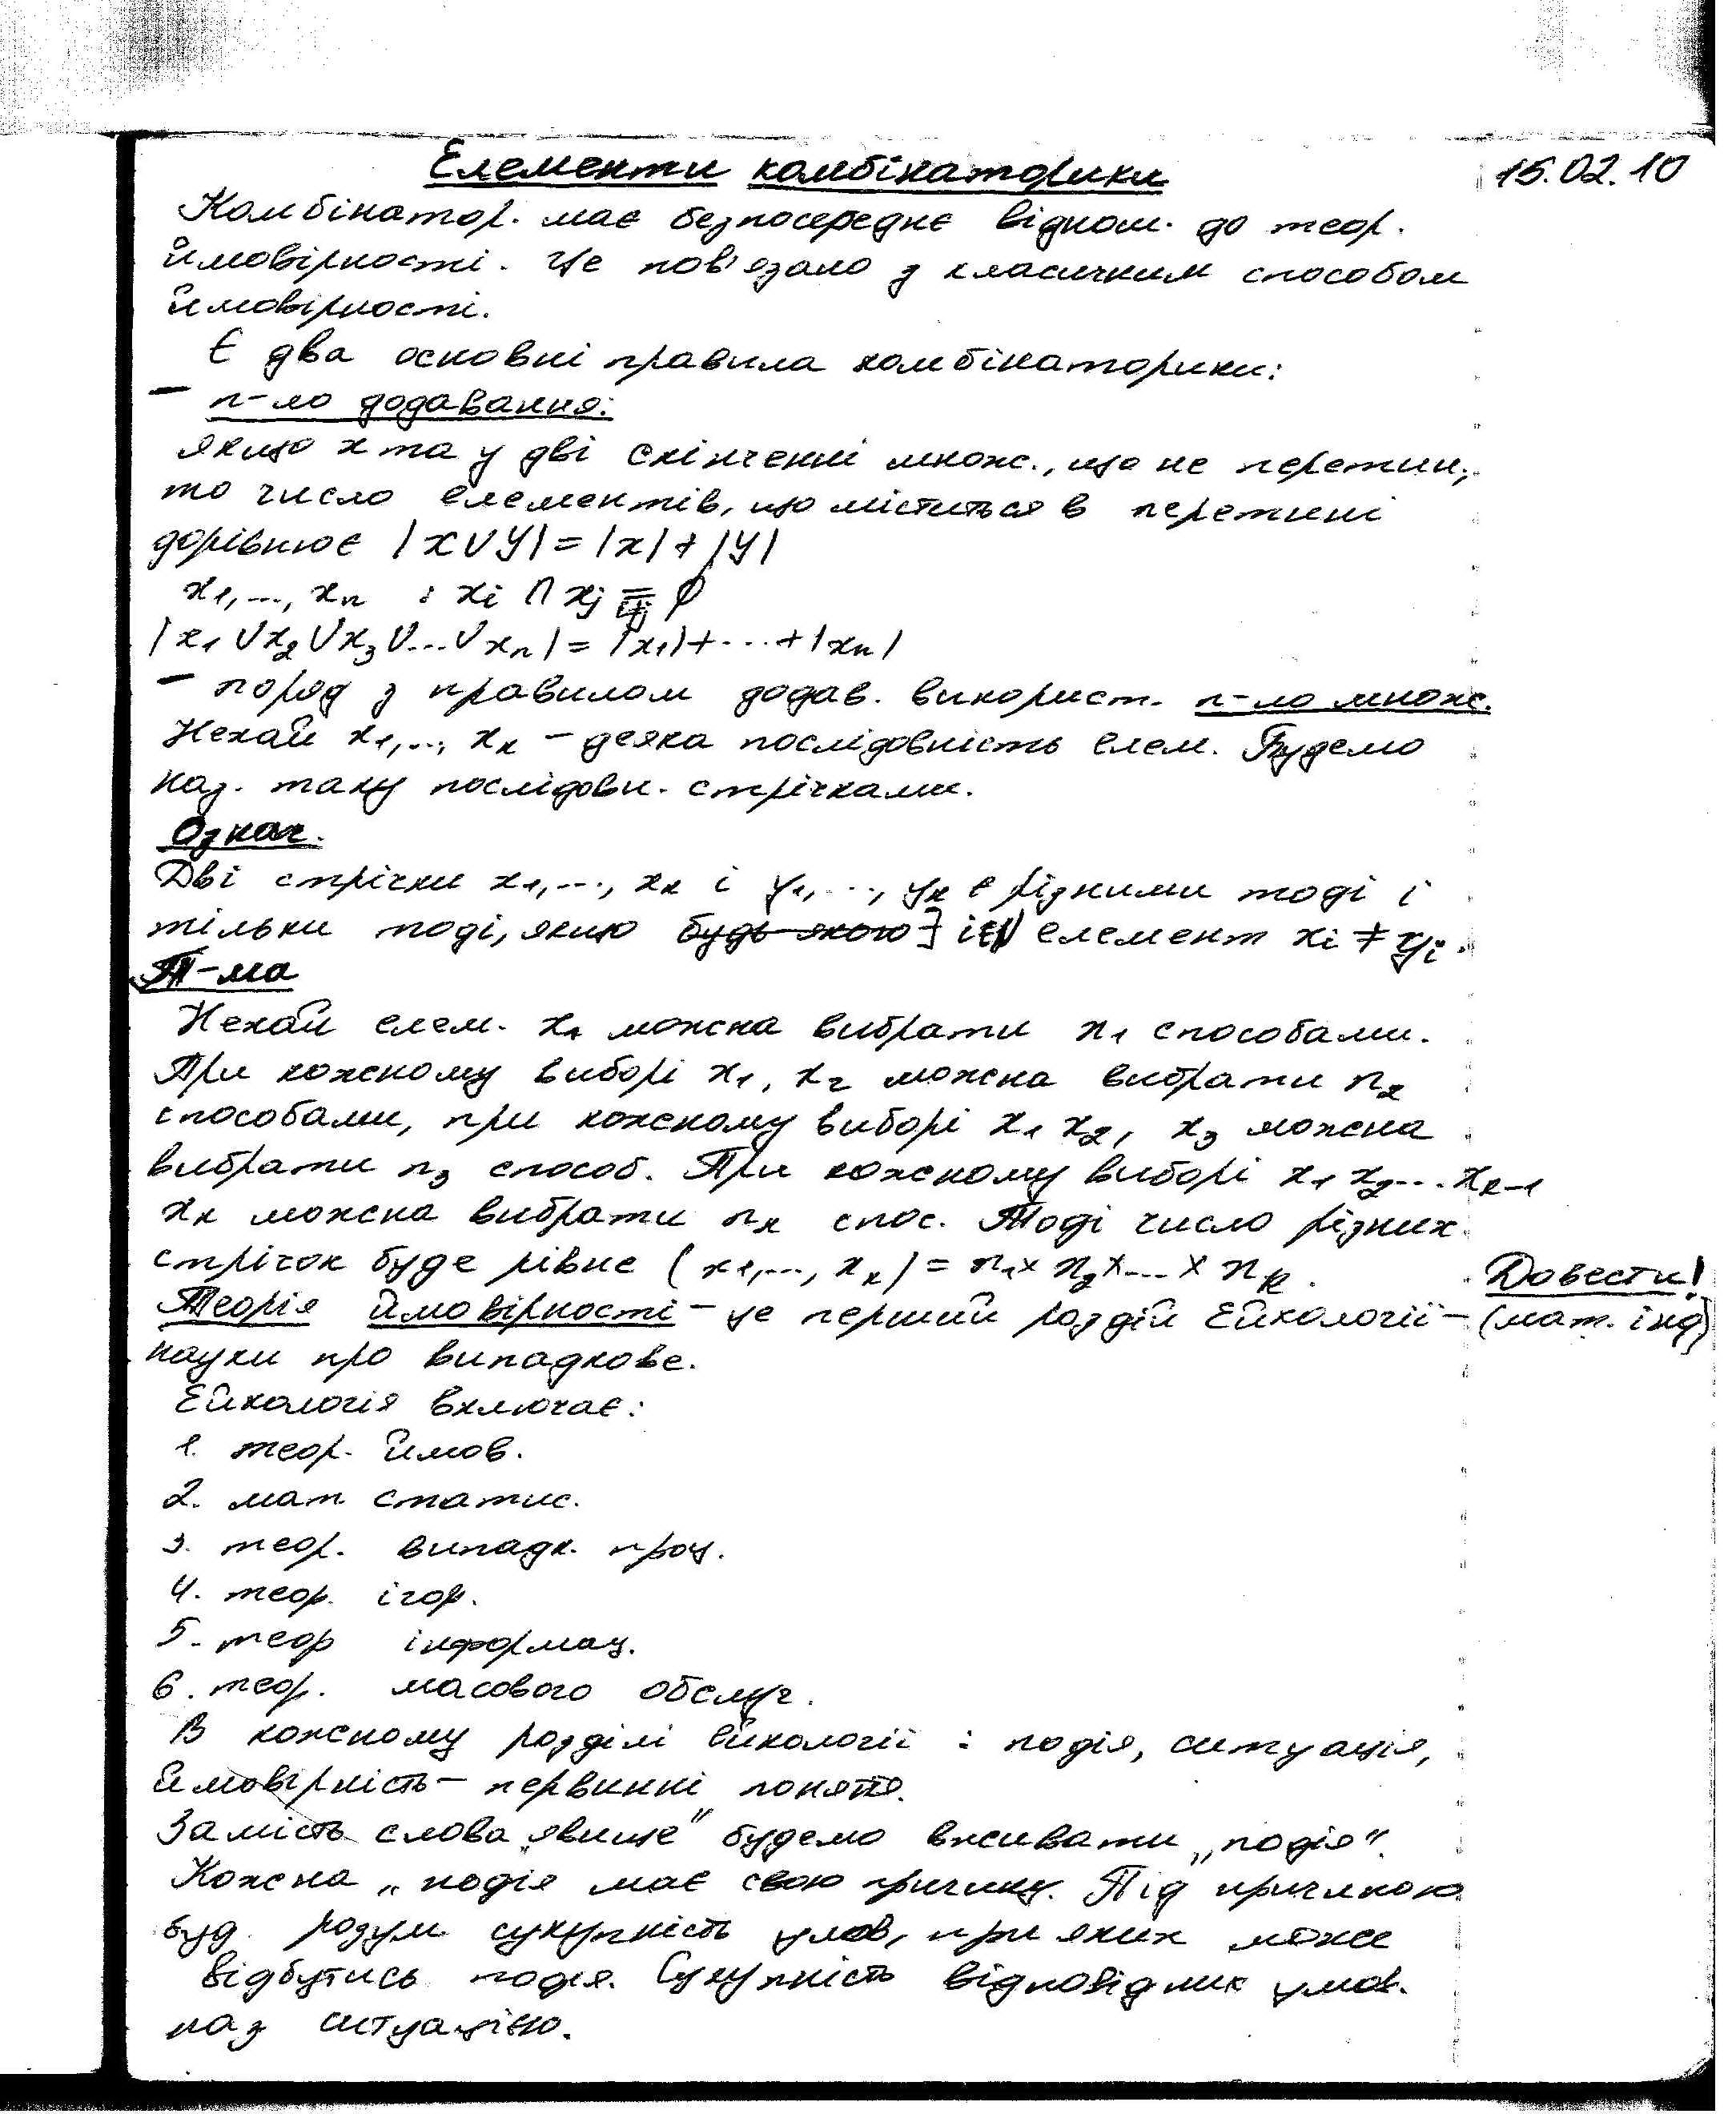 Елементи комбінаторики
15.02.10
Комбінатор. має безпосереднє віднош. до теор.
ймовірності. Це пов'язано з класичним способом
ймовірності.
Є два основні правила комбінаторики:
– п-ло додавання:
якщо x та y дві скінченні множ., що не перетин.,
то число елементів, що міститься в перетині
дорівнює |X∪Y| = |x| + |Y|
x1,..., xn : xi ∩ xj = ∅
|x1 ∪ x2 ∪ x3 ∪...∪ xn| = |x1|+...+|xn|
– поряд з правилом додав. використ. п-ло множ.
Нехай x1,..., xk – деяка послідовність елем. Будемо
наз. таку послідовн. стрічками.
Означ.
Дві стрічки x1,..., xk і y1,..., yk є різними тоді і
тільки тоді, якщо будь-якою ∃ i∈N елемент xi ≠ yi.
Т-ма
Нехай елем. x1 можна вибрати n1 способами.
При кожному виборі x1, x2 можна вибрати n2
способами, при кожному виборі x1 x2, x3 можна
вибрати n3 способ. При кожному виборі x1 x2... xk-1
xk можна вибрати nk спос. Тоді число різних
стрічок буде рівне (x1,..., xk) = n1 × n2 ×... × nk.
Довести!
Теорія ймовірності – це перший розділ Ейкології –
(мат. інд)
науки про випадкове.
Ейкологія включає:
1. теор. ймов.
2. мат статис.
3. теор. випадк. проц.
4. теор. ігор.
5. теор інформац.
6. теор. масового обслуг.
В кожному розділі ейкології : подія, ситуація,
ймовірність – первинні поняття.
Замість слова „явище" будемо вживати „подія".
Кожна „подія має свою причину. Під причиною
буд. розум сукупність умов, при яких може
відбутись подія. Сукупність відповідних умов.
наз ситуацією.